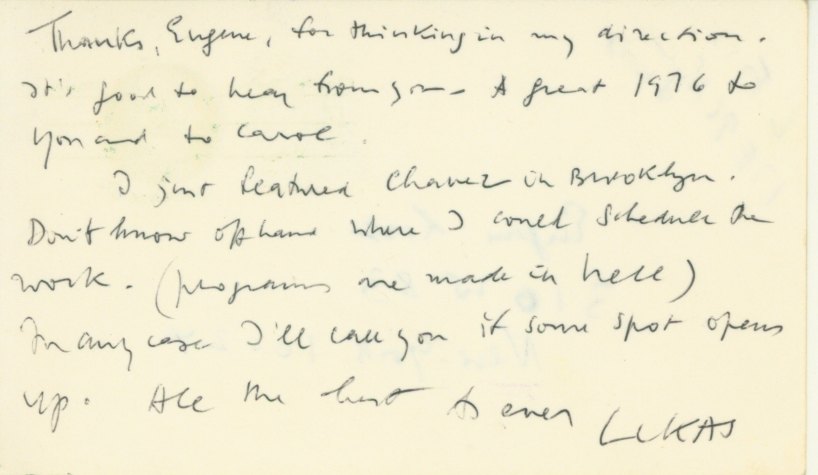 Thanks, Eugene, for thinking in my direction.
It's good to hear from you - A great 1976 to
you and to Carol.
I just featured Chavez in Brooklyn.
Don't know offhand where I could schedule the
work. (programs are made in hell)
In any case I'll call you if some spot opens
up. All the best As ever LUKAS